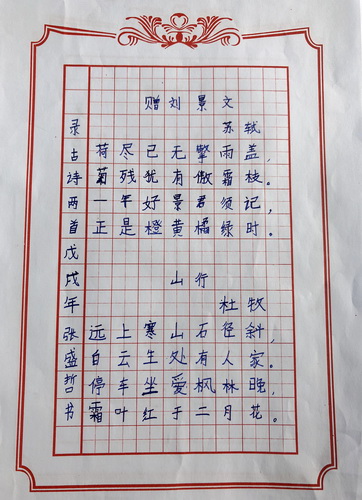 赠刘景文
苏轼
荷尽已无擎雨盖，
菊残犹有傲霜枝。
一年好景君须记，
正是橙黄橘绿时。
山行
杜牧
远上寒山石径斜，
白云生处有人家。
停车坐爱枫林晚，
霜叶红于二月花。
录古诗两首戊戌年张盛哲书